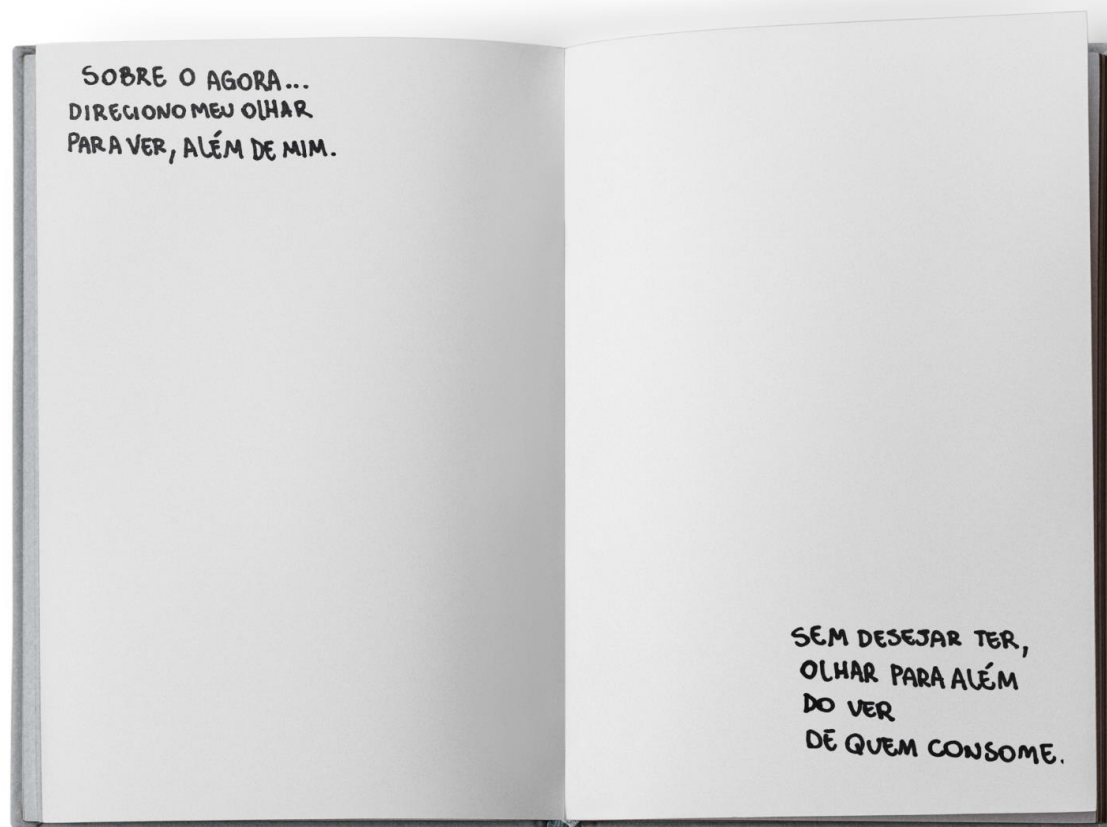 SOBRE O AGORA...
DIRECIONO MEU OLHAR
PARA VER, ALÉM DE MIM.
SEM DESEJAR TER,
OLHAR PARA ALÉM
DO VER
DE QUEM CONSOME.